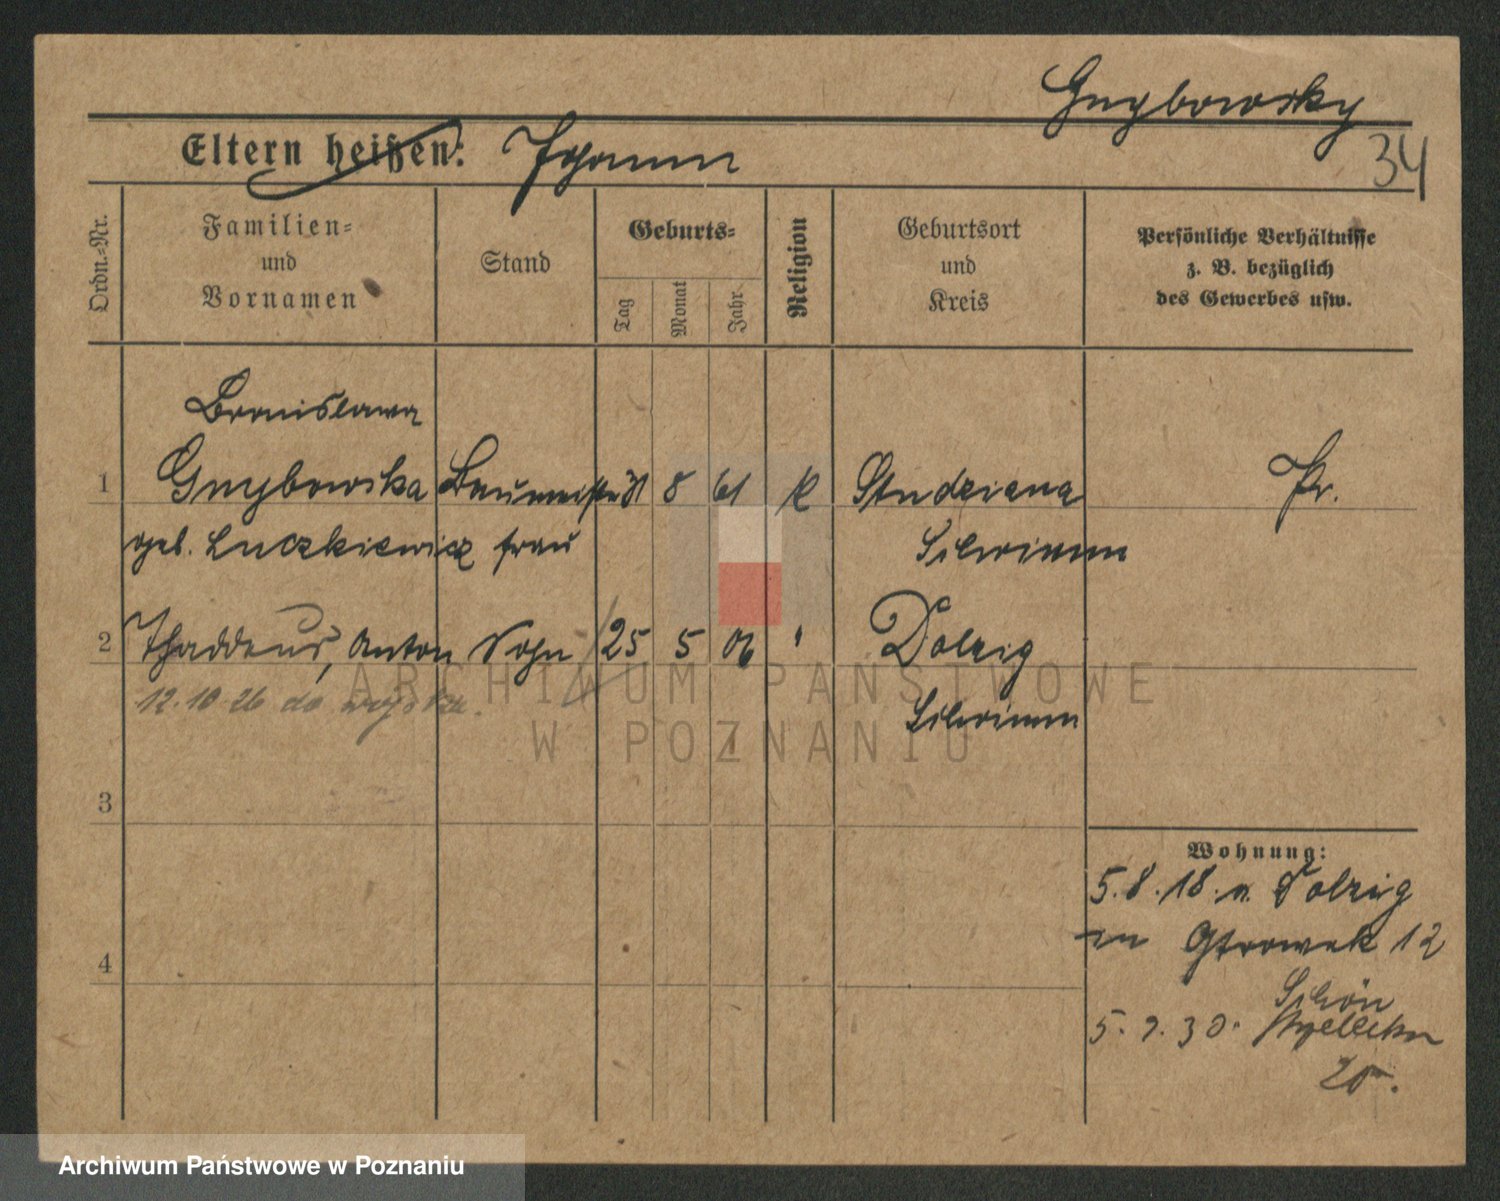 Gnybowsky
34
Eltern heißen: Johann
Ordn.-Nr.
Familien-
und
Vornamen
Stand
Geburts-
Tag
Monat
Jahr
Religion
Geburtsort
und
Kreis
Persönliche Verhältnisse
z. B. bezüglich
des Gewerbes usw.
Bronislawa
1 Gnybowska Baumeister 8 61 K Studziana Pr.
geb. Luczkiewicz frau Schrimm
2 Thaddeus, Anton Sohn 25 5 06 " Dolzig
12.10 26 do wojska. Schrimm
3
4
Wohnung:
5.8.18. v. Dolzig
12
5. 30.
20.
ARCHIWUM PAŃSTWOWE
W POZNANIU
Archiwum Państwowe w Poznaniu